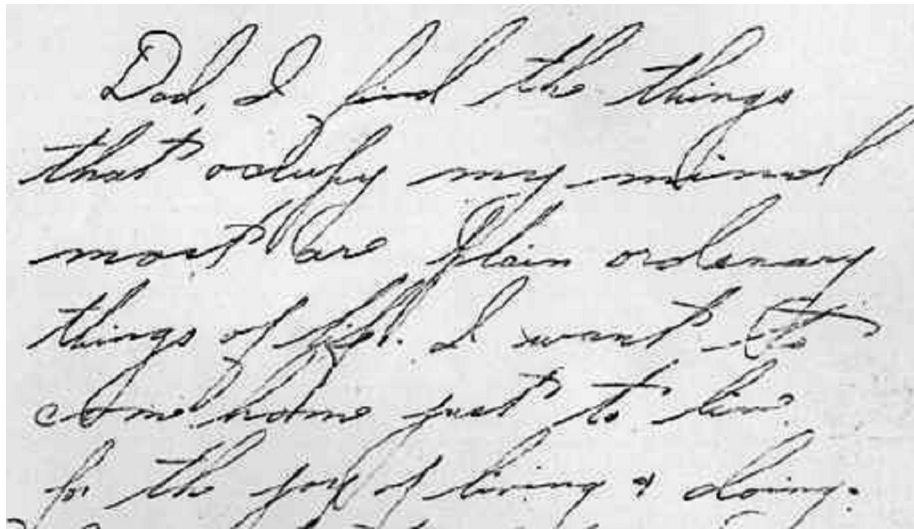 Dad, I find the things
that occupy my mind
most are plain ordenary
things of life. I want to
come home just to live
for the joy of living & doing.